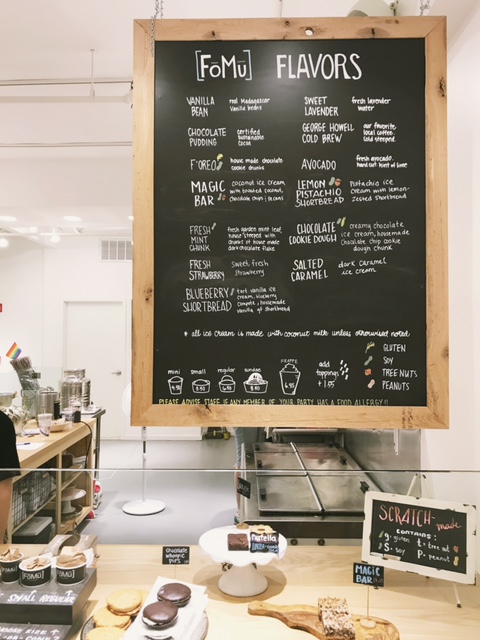 [FōMū] FLAVORS
VANILLA BEAN
real Madagascar
Vanilla beans
CHOCOLATE PUDDING
certified
sustainable
cocoa
F'OREO
house made chocolate
cookie chunks
MAGIC BAR
coconut ice cream
with toasted coconut,
chocolate chips, pecans
FRESH MINT CHUNK
fresh garden mint leaf,
house steeped with
chunks of house made
dark chocolate flake
FRESH STRAWBERRY
Sweet fresh
Strawberry
BLUEBERRY SHORTBREAD
tart vanilla ice
cream, blueberry
compote, homemade
vanilla gf shortbread
SWEET LAVENDER
fresh lavender
water
GEORGE HOWELL COLD BREW
our favorite
local coffee
cold steeped
AVOCADO
fresh avocado,
hand cut hint of lime
LEMON PISTACHIO SHORTBREAD
Pistachio ice
cream with lemon-
zested Shortbread
CHOCOLATE COOKIE DOUGH
creamy chocolate
ice cream, homemade
chocolate chip cookie
dough chunk
SALTED CARAMEL
dark caramel
ice cream
* all ice cream is made with coconut milk unless otherwised noted
mini
small
regular
sundae
FRAPPE
add
toppings
+ 1.55
GLUTEN
SOY
TREE NUTS
PEANUTS
PLEASE ADVISE STAFF IF ANY MEMBER OF YOUR PARTY HAS A FOOD ALLERGY!!
SCRATCH-made
CONTAINS:
g- gluten t- tree nut
S- soy P- peanut
Nutella
Chocolate
whoopie
pies
MAGIC
BAR
[FōMū]
[FōMū]
SMALL REGULAR